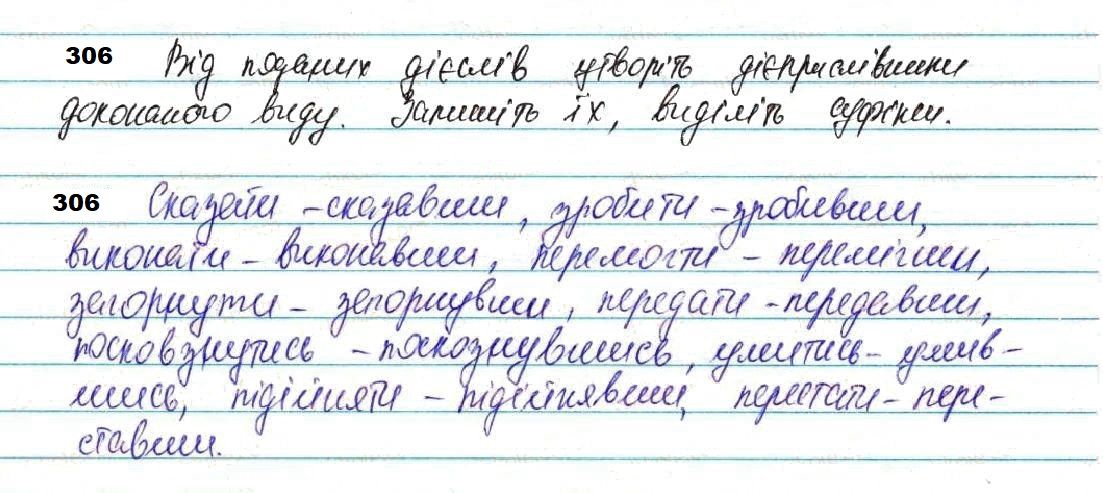 306 Від поданих дієслів утворіть дієприслівники
доконаного виду. Запишіть їх, виділіть суфікси.
306 Сказати - сказавши, зробити - зробивши,
виконати - виконавши, перемогти - перемігши,
загорнути - загорнувши, передати - передавши,
посковзнутись - поскознувшись, умитись - умив-
шись, підійняти - підійнявши, перестати - пере-
ставши.